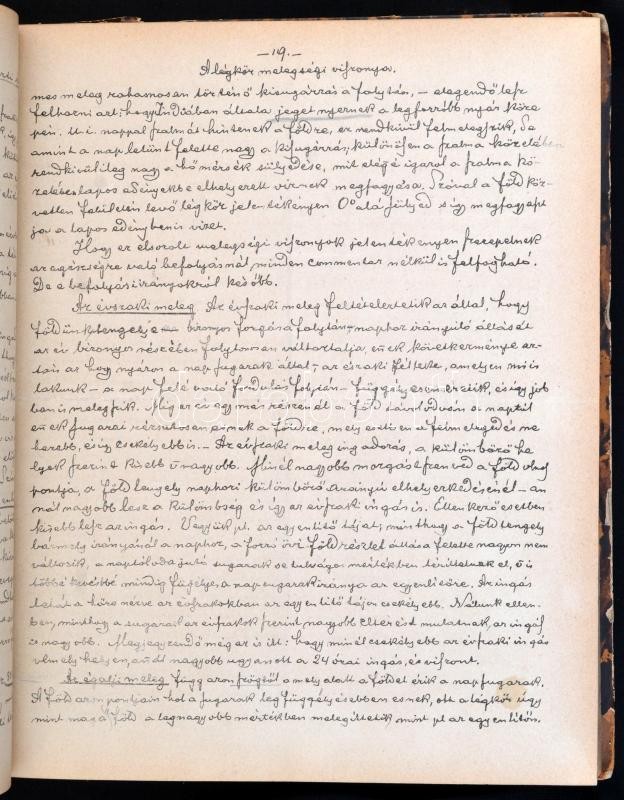 —19.—
A légkör melegségi viszonya.
mes meleg rohamosan történő kisugárzása folytán, — elegendő lesz
felhozni azt: hogy Indiában általa jeget nyernek a legforróbb nyár köze
pén. U.i. nappal szalmát hintenek a földre, ez rendkívül felmelegszik, de
amint a nap letünt felette nagy a kisugárzás, különösen a szalma közelében
rendkivülileg nagy a hőmérsék sülyedése, mit eléggé igazol a szalma kö
zelében lapos edényekbe elhelyezett víznek megfagyása. Szóval a föld köz-
vetlen felületén levő légkör jelentékenyen 0° alá sülyed s így megfagyaszt
ja a lapos edényben is vizet.
Hogy ez elsorolt melegségi viszonyok jelentékenyen szerepelnek
az egészségre való befolyásnál, minden commentar nélkül is felfogható.
De e befolyási irányokról később.
Az évszaki meleg. Az évszaki meleg feltételeztetik az által, hogy
földünk tengelye bizonyos forgása folytán, naphoz irányuló állását
az év bizonyos részében folytonosan változtatja, ennek következménye az-
tán az hogy nyáron a nap fugarak által, az északi félteke, amelyen mi is
lakunk — a nap felé való fordulás folytán — függélyesen éretik, és így job
ban is melegszik. Míg az év egy más részénél a föld távolodván a naptól
ennek sugarai rézsutosan érnek a földre, mely esetben a felmelegedés ne
hezebb, és így csekélyebb is. — Az évszaki meleg ingadozás, a különböző he
lyek szerint kisebb v. nagyobb. Minél nagyobb mozgást szenved a föld oly
pontja, a föld tengely naphozi különböző arányú elhelyezkedésénél — an
nál nagyobb lesz a különbség és így az évszaki ingás is. Ellenkező esetben
kisebb lesz az ingás. Vegyük pl. az egyenlitő tájat, minthogy a föld tengely
bármely irányánál a naphoz, a forró övi föld részlet állása felette nagyon nem
változik, a naptól oda jutó sugarak se tulságos mértékben térittetnek el, ő is
többé kevésbbé mindig függélyes a nap sugarak iránya az egyenlitőre. Az ingás
tehát a hőre nézve az évszakokban az egyenlítő táján csekélyebb. Nálunk ellen
ben, minthogy a sugarak az évszakok szerint nagyobb elterést mutatnak, az ingás
is nagyobb. Megjegyzendő még az is itt: hogy minél csekélyebb az évszaki ingás
vlmely helyen, annál nagyobb ugyanott a 24 órai ingás, és viszont.
Az égalji meleg függ azon szögtől a mely alatt a földet érik a nap sugarak.
A föld azon pontjain hol a sugarak legfüggélyesebben esnek, ott a légkör úgy
mint maga föld a legnagyobb mértékben melegittetik, mint pl az egyenlitőn.